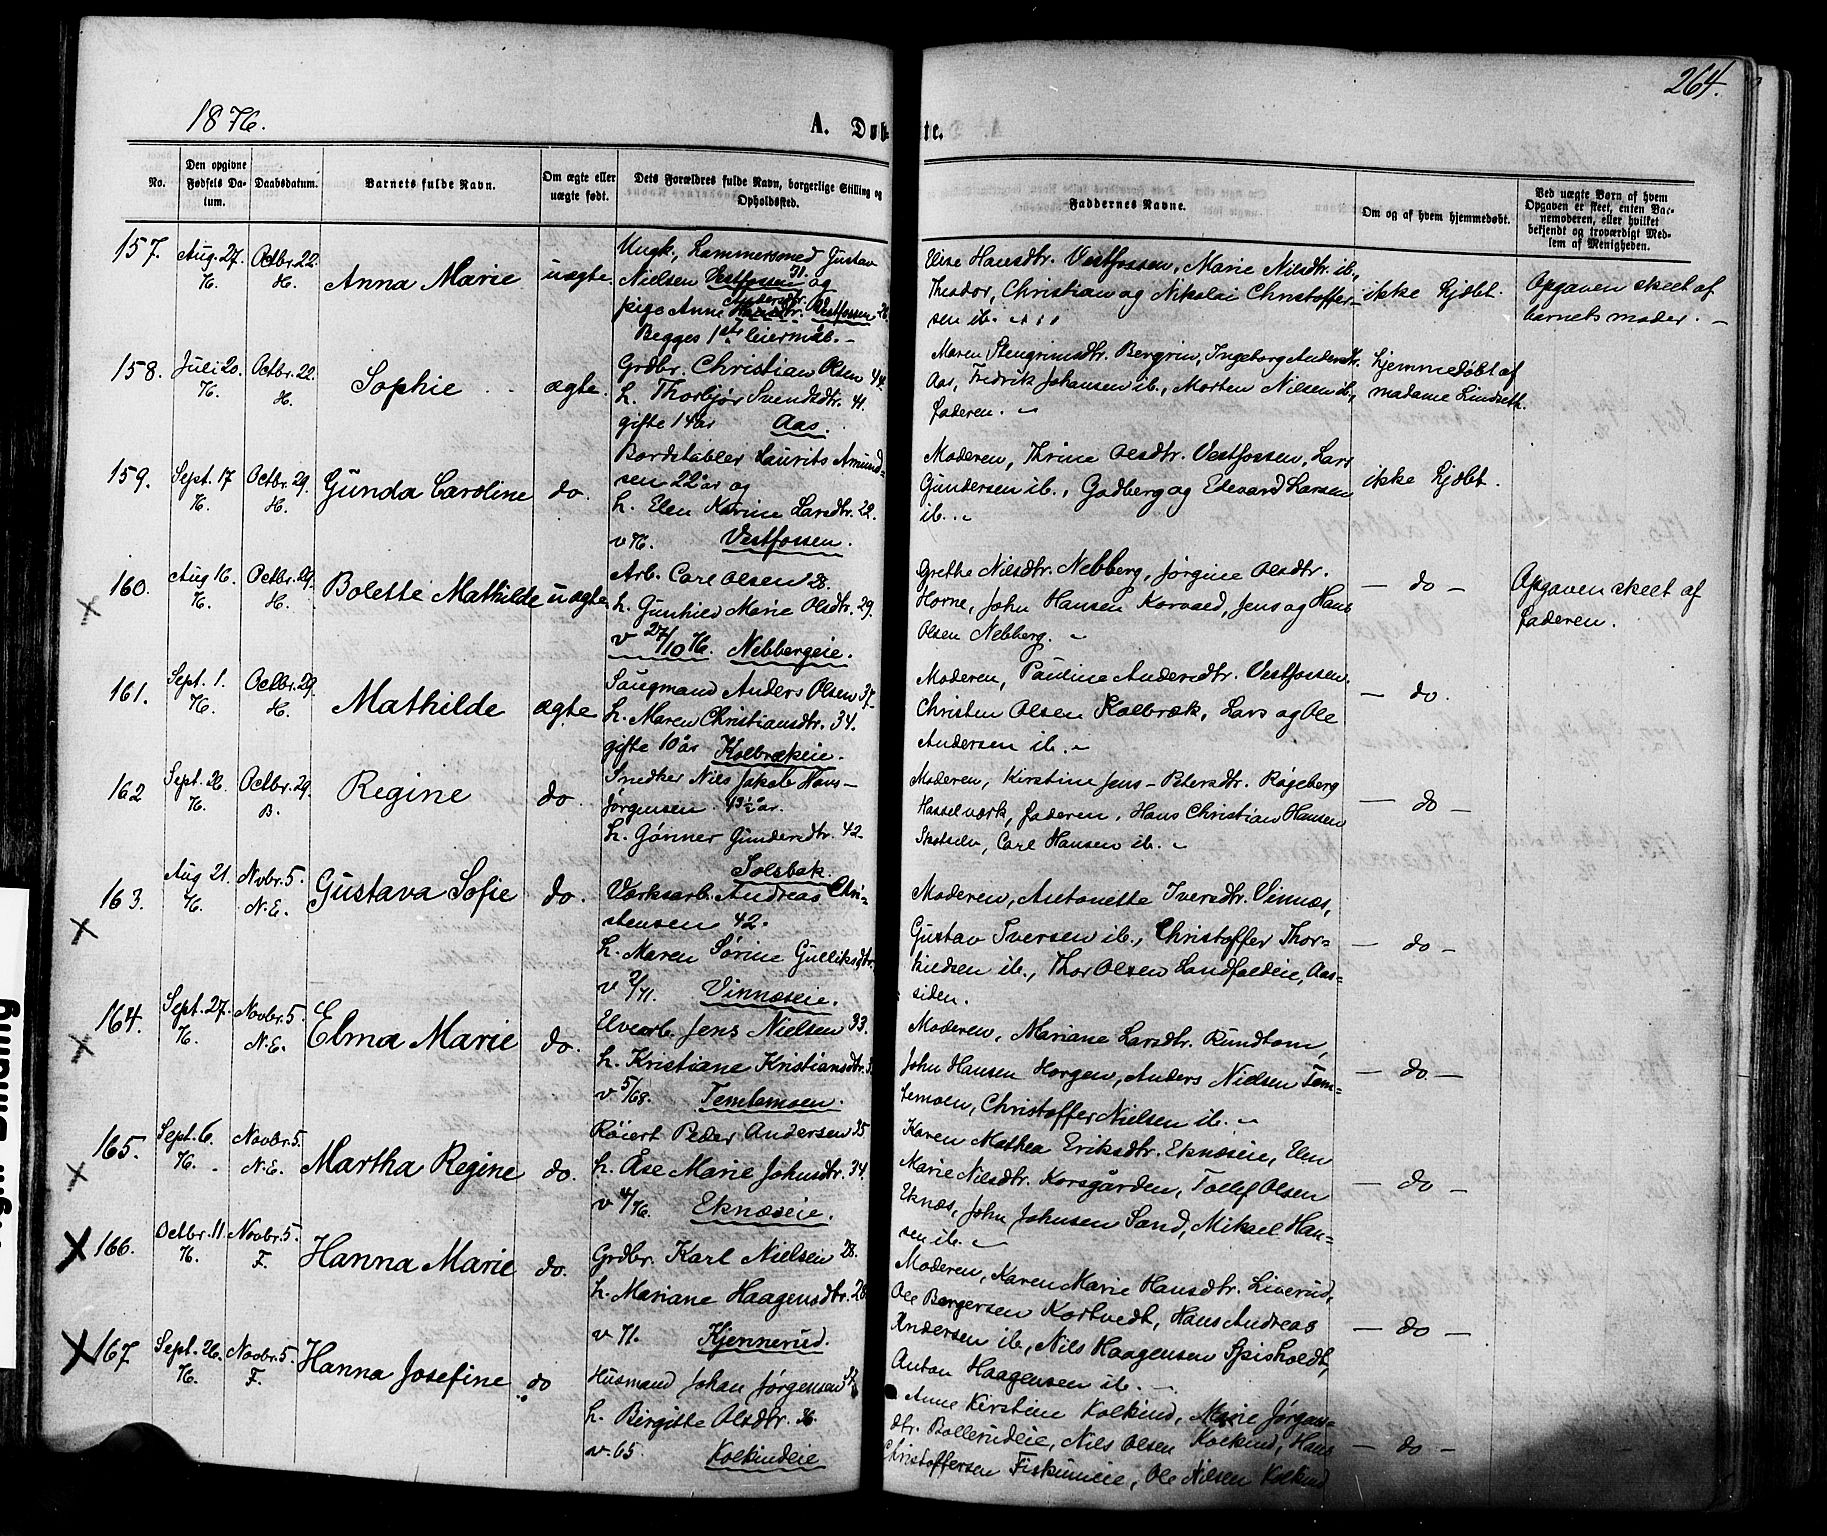 264.
1876.
A. Døbte.
No.
Den opgivne Fødsels Datum.
Daabsdatum.
Barnets fulde Navn.
Om ægte eller uægte født.
Dets Forældres fulde Navn, borgerlige Stilling og Opholdssted.
Faddernes Navne.
Om og af hvem hjemmedøbt.
Ved uægte Børn af hvem Opgaven er skeet, enten Barnemoderen, eller hvilket bekjendt og troværdigt Medlem af Menigheden.
157. Aug. 27. 76. Octbr. 22. H. Anna Marie uægte
Ungk., Lammersmed Gustav
Nielsen Vestfossen 31. og
pige Anne Andersdtr. Vestfossen 26
Begges 1ste leiermål. –
Elise Hansdtr. Vestfossen, Marie Nilsdtr. ib.,
Theodor, Christian og Nikolai Christoffer-
sen ib.
ikke hjdbt.
Opgaven skeet af
barnets moder. –
158. Juli 20. 76. Octbr. 22. H. Sophie ægte
Grdbr. Christian Olsen 44
h. Thorbjør Svendsdtr. 41.
gifte 14 år Aas.
Maren Stengrimsdtr. Bergrin, Ingeborg Andersdtr.
Aas, Fredrik Johansen ib., Morten Nilsen ib.,
faderen.
hjemmedøbt af
madame Lindseth.
159. Sept. 17 76. Octbr. 29. H. Gunda Caroline do.
Bordstabler Laurits Amund-
sen 22 år og
h. Elen Karine Larsdtr. 22.
v 76. Vestfossen.
Moderen, Thrine Olsdtr. Vestfossen, Lars
Gundersen ib., Gudberg og Edevard Larsen
ib.
ikke hjdbt.
160. Aug 16. 76. Octbr. 29. H. Bolette Mathilde uægte
Arb. Carl Olsen 28.
h. Gunhild Marie Olsdtr. 29.
v 27/10 76. Nebbergeie.
Grethe Nilsdtr. Nebberg, Jørgine Olsdtr.
Horne, John Hansen Korvald, Jens og Hans
Olsen Nebberg.
– do –
Opgaven skeet af
faderen.
161. Sept. 1. 76. Octbr. 29. H. Mathilde ægte
Saugmand Anders Olsen 37
h. Maren Christiansdtr. 34.
gifte 10 år Kolbrækeie.
Moderen, Pauline Andersdtr. Vestfossen,
Christen Olsen Kolbræk, Lars og Ole
Andersen ib.
– do.
162 Sept. 26. 76. Octbr. 29. B. Regine do.
Snedker Nils Jakob Hans-
Jørgensen 43½ år.
h. Gønner Gundersdtr. 42
Solsbak.
Moderen, Kirstine Jens-Petersdtr. Røgeberg
Hasselværk, faderen, Hans Christian Hansen
Skotselv, Carl Hansen ib.
– do –
163. Aug 21. 76. Novbr. 5. N.E. Gustava Sofie do.
Værksarb. Andreas Chri-
stensen 42.
h. Maren Sørine Gulliksdtr.
v 2/71. Vinnæseie.
Moderen, Antonette Iversdtr. Vinnæs,
Gustav Iversen ib., Christoffer Thor-
kildsen ib., Thor Olsen Landfaldeie, Aas-
siden.
– do –
164. Sept. 27. 76. Novbr. 5. N.E. Elma Marie do.
Elvearb. Jens Nielsen 33.
h. Kristiane Kristiansdtr.
v 5/68. Temtemoen.
Moderen, Mariane Larsdtr. Rundtom,
John Hansen Horgen, Anders Nielsen Tem-
temoen, Christoffer Nielsen ib.
– do. –
165. Sept. 6. 76. Novbr. 5. N.E. Martha Regine do.
Røiert Peder Andersen 35
h. Åse Marie Johnsdtr. 34.
v 4/76. Eknæseie.
Karen Mathea Eriksdtr. Eknæseie, Elen
Marie Nilsdtr. Korsgården, Tollef Olsen
Eknæs, John Johnsen Sand, Mikael Han-
sen ib.
– do –
166. Octbr. 11. 76. Novbr. 5. F. Hanna Marie do.
Grdbr. Karl Nielsen 28.
h. Mariane Haagensdtr. 28
v 71. Kjennerud.
Moderen, Karen Marie Hansdtr. Liverud,
Ole Bergersen Kortvedt, Hans Andreas
Andersen ib., Nils Haagensen Spisholdt,
Anton Haagensen ib. –
– do –
167 Sept. 26. 76. Novbr. 5. F. Hanna Josefine do
Husmand Johan Jørgensen
h. Birgitte Olsdtr. 36.
v 65 Kolkindeie
Anne Kirstine Kolkind, Marie Jørgens-
dtr. Bollerudeie, Nils Olsen Kolkind, Hans
Christoffersen Fiskumeie, Ole Nilsen Kolkind
– do –